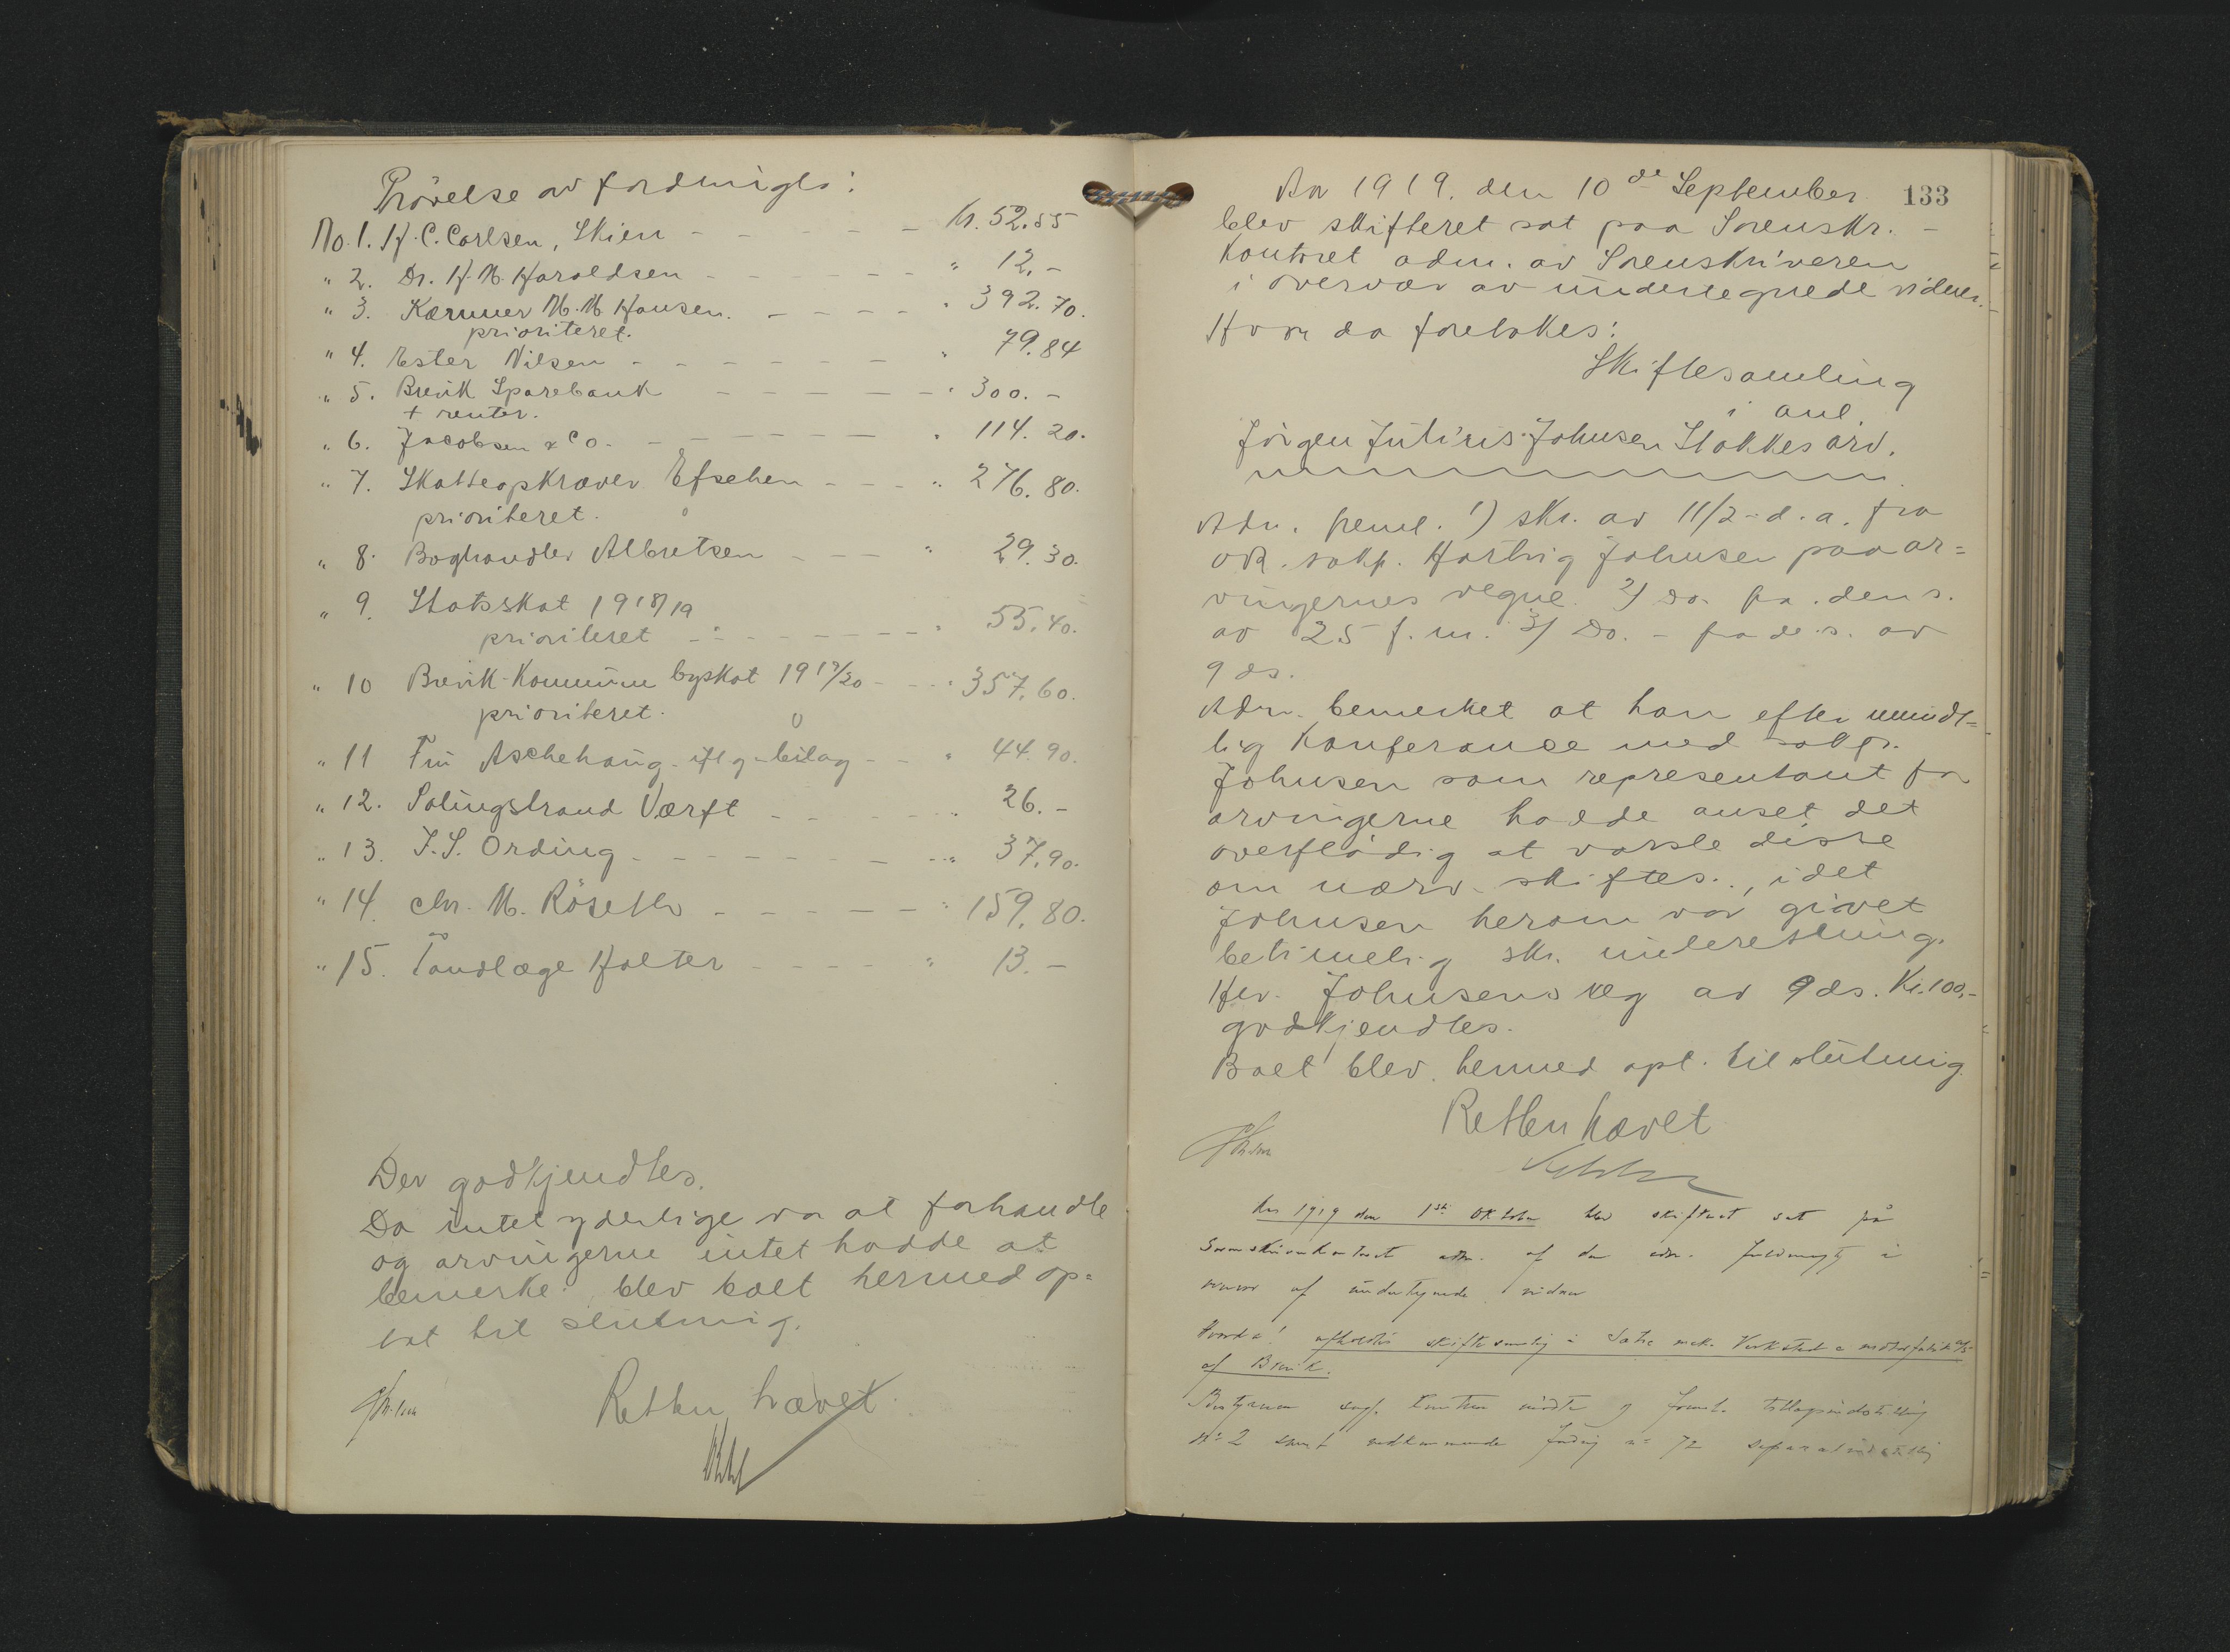 Prövelse av fordringer:
No. 1. H. C. Carlsen, Skien - - - - - Kr. 52.55
" 2. Dr. H. M. Haraldsen - - - - - " 12.-
" 3. Kæmner M. M. Hansen. - - - - " 392.70.
prioriteret.
" 4. Ester Nilsen - - - - - " 79.84
" 5. Brevik Sparebank - - - - - " 300.-
+ renter.
" 6. Jacobsen & Co. - - - - - " 114.20.
" 7. Skatteopkræver Efsehen - - - " 276.80.
prioriteret.
" 8. Boghandler Albretsen - - - " 29.30.
" 9. Statsskat 1918/19
prioriteret - - - - - - " 55.40.
" 10 Brevik Kommune byskat 1919/20 - - - " 357.60.
prioriteret.
" 11 Fru Aschehoug iflg. bilag - - " 44.90.
" 12. Salingstrand Værft - - - - - " 26.-
" 13. J. S. Ording - - - - - - - " 37.90.
" 14. Chr. M. Röseth - - - - - " 159.80.
" 15. Tandlæge Holter - - - - " 13.-
Der godkjendtes.
Da intet yderlige var at forhandle
og arvingerne intet hadde at
bemerke blev boet hermed op=
tat til slutning.
Retten hævet
133
Aar 1919. den 10de September
blev skifteret sat paa Sorenskr.-
kontoret adm. av Sorenskriveren
i overvær av undertegnede vidner.
Hvor da foretokes:
Skiftesamling
i anl.
Jörgen Julius Johnsen Stokkes arv.
Adm. freml. 1) skr. av 11/2 d. a. fra
o.r. sakf. Hartvig Johnsen paa ar=
vingernes vegne. 2) Do. fra den s.
av 25 f. m. 3) Do. - fra d. s. av
9 ds.
Adm. bemerket at han efter mundt=
lig konferance med sakf.
Johnsen som representant for
arvingerne hadde anset det
overflödig at varsle disse
om nærv. skiftes., idet
Johnsen herom var givet
betimelig skr. underetning.
Hr. Johnsens reg av 9 ds. Kr. 100.-
godkjendtes.
Boet blev hermed opt. til slutning.
Retten hævet
Aar 1919 den 1ste Oktober blev skifteret sat på
Sorenskriverkontoret adm. af den edsv. fuldmægtig i
overvær af undertegnede vidner
Hvorda! afholdtes skiftesamling i Sætre mek. Verksted & motorfabrik A/S
af Brevik.
Bestyreren sagf. mödte og freml. tillægsindstilling
no 2 samt vedkommende fordring no 72 separatindstilling